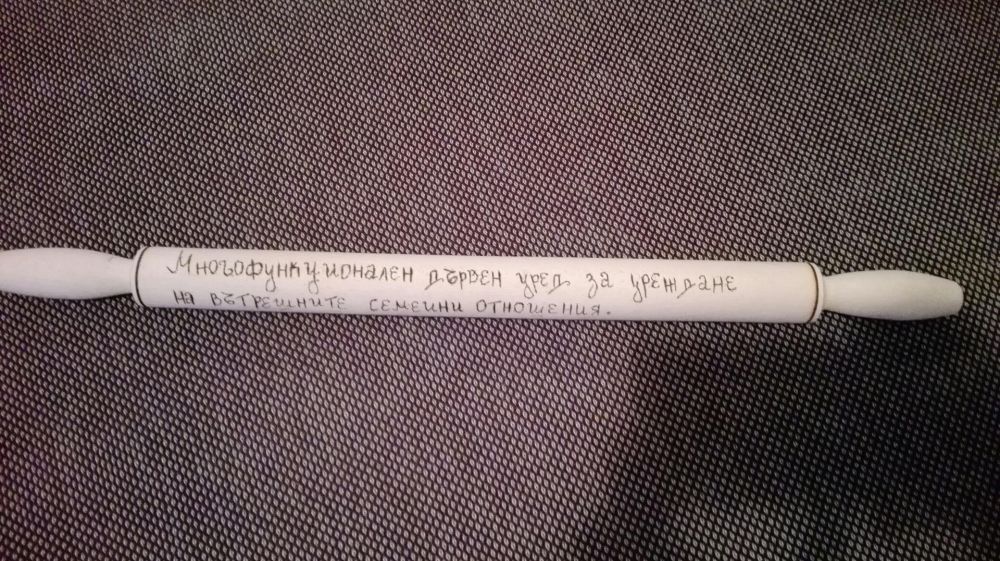 Многофункционален дървен уред за уреждане
на вътрешните семейни отношения.